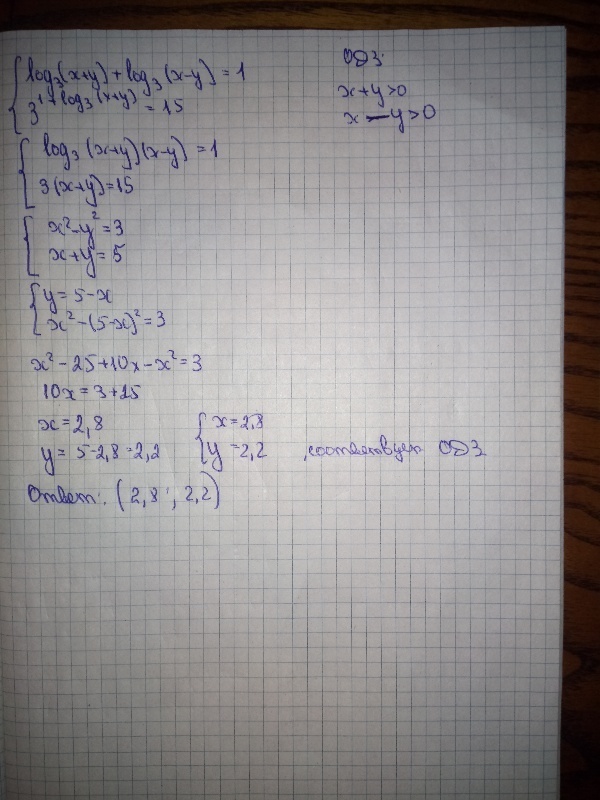 log₃(x+y) + log₃(x-y) = 1
3^(1+log₃(x+y)) = 15
ОДЗ:
x+y>0
x-y>0
log₃(x+y)(x-y) = 1
3(x+y)=15
x²-y²=3
x+y=5
y=5-x
x²-(5-x)²=3
x²-25+10x-x²=3
10x=3+25
x=2,8
y=5-2,8=2,2
x=2,8
y=2,2 , соответвует ОДЗ
Ответ: (2,8; 2,2)